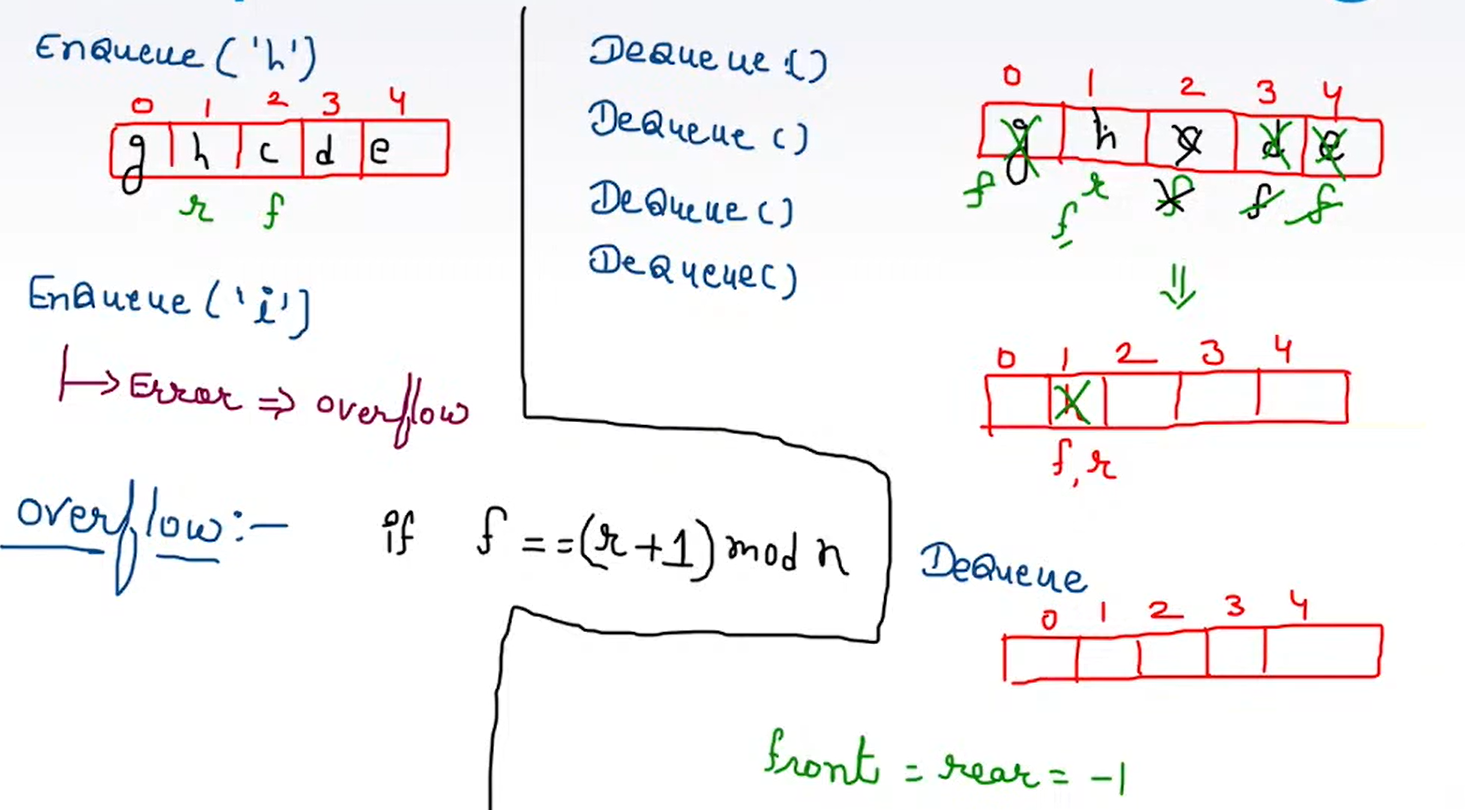 Enqueue ('h')
0 1 2 3 4
g h c d e
r f
Enqueue ('i')
Error ⇒ overflow
overflow:-
if f ==(r+1) mod n
Dequeue ()
Dequeue ()
Dequeue ()
Dequeue()
0 1 2 3 4
g h c d e
f r f f f
f
⇓
0 1 2 3 4
h
f, r
Dequeue
0 1 2 3 4
front = rear = -1